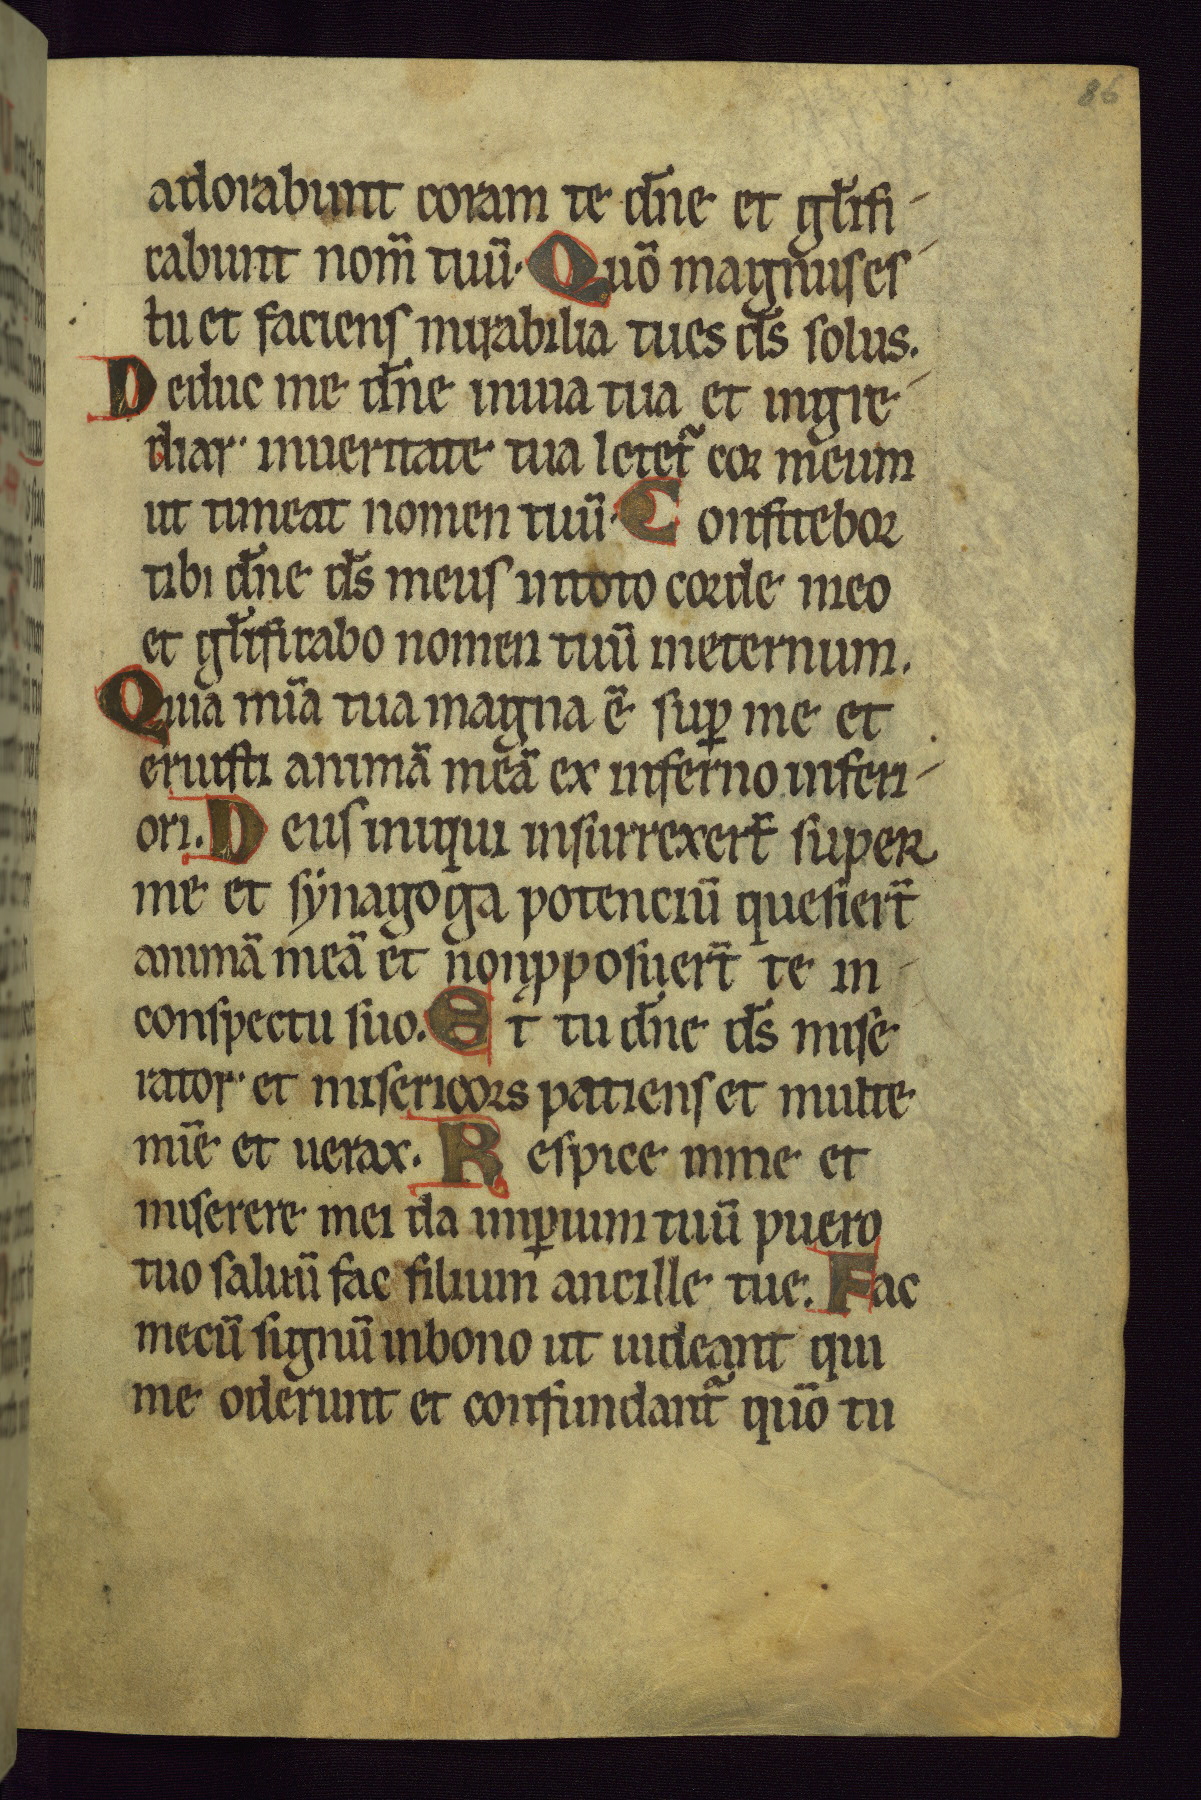 86
adorabunt coram te dn̄e et gl̄ifi-
cabunt nom̄ tuū. Quō magnus es
tu et faciens mirabilia tu es d̄s solus.
Deduc me dn̄e inuia tua et ingre-
diar inueritate tua letet̃ cor meum
ut timeat nomen tuū. Confitebor
tibi dn̄e d̄s meus intoto corde meo
et gl̄ificabo nomen tuū ineternum.
Quia mīa tua magna ē sup̱ me et
eruisti animā meā ex inferno inferi-
ori. Deus iniqui insurrexer̄t super
me et sẏnagoga potenciū quesier̄t
animā meā et non ꝓposuer̄t te in
conspectu suo. Et tu dn̄e d̄s mise
rator et misericors patiens et multe
mīe et uerax. Respice inme et
miserere mei da imꝑium tuū puero
tuo saluū fac filium ancille tue. Fac
mecū signū inbono ut uideant qui
me oderunt et confundant̃ quō tu